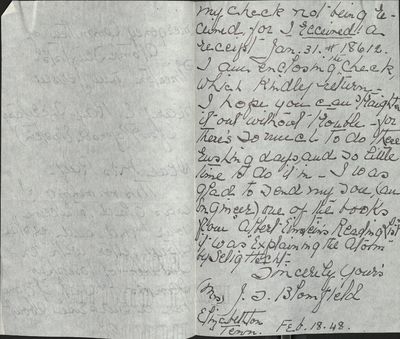 my check not being re-
ceived - for I received a
receipt Jan. 31. # 18612.
I am enclosing the check
which kindly return -
I hope you can straighten
it out without trouble - for
there's so much to do these
rushing days and so little
time to do it in - I was
glad to send my son, (an
Engineer) one of the books
from Albert Einstein's Reading list
it was Explaining the Atom
by Selig Hecht -
Sincerely yours
Mrs J. I. Blomfield
Elizabethton
Tenn. Feb. 18. 48.